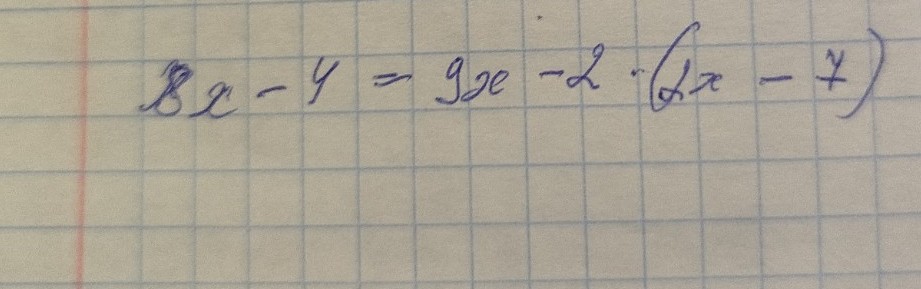 8x - 4 = 9x - 2 · (2x - 7)